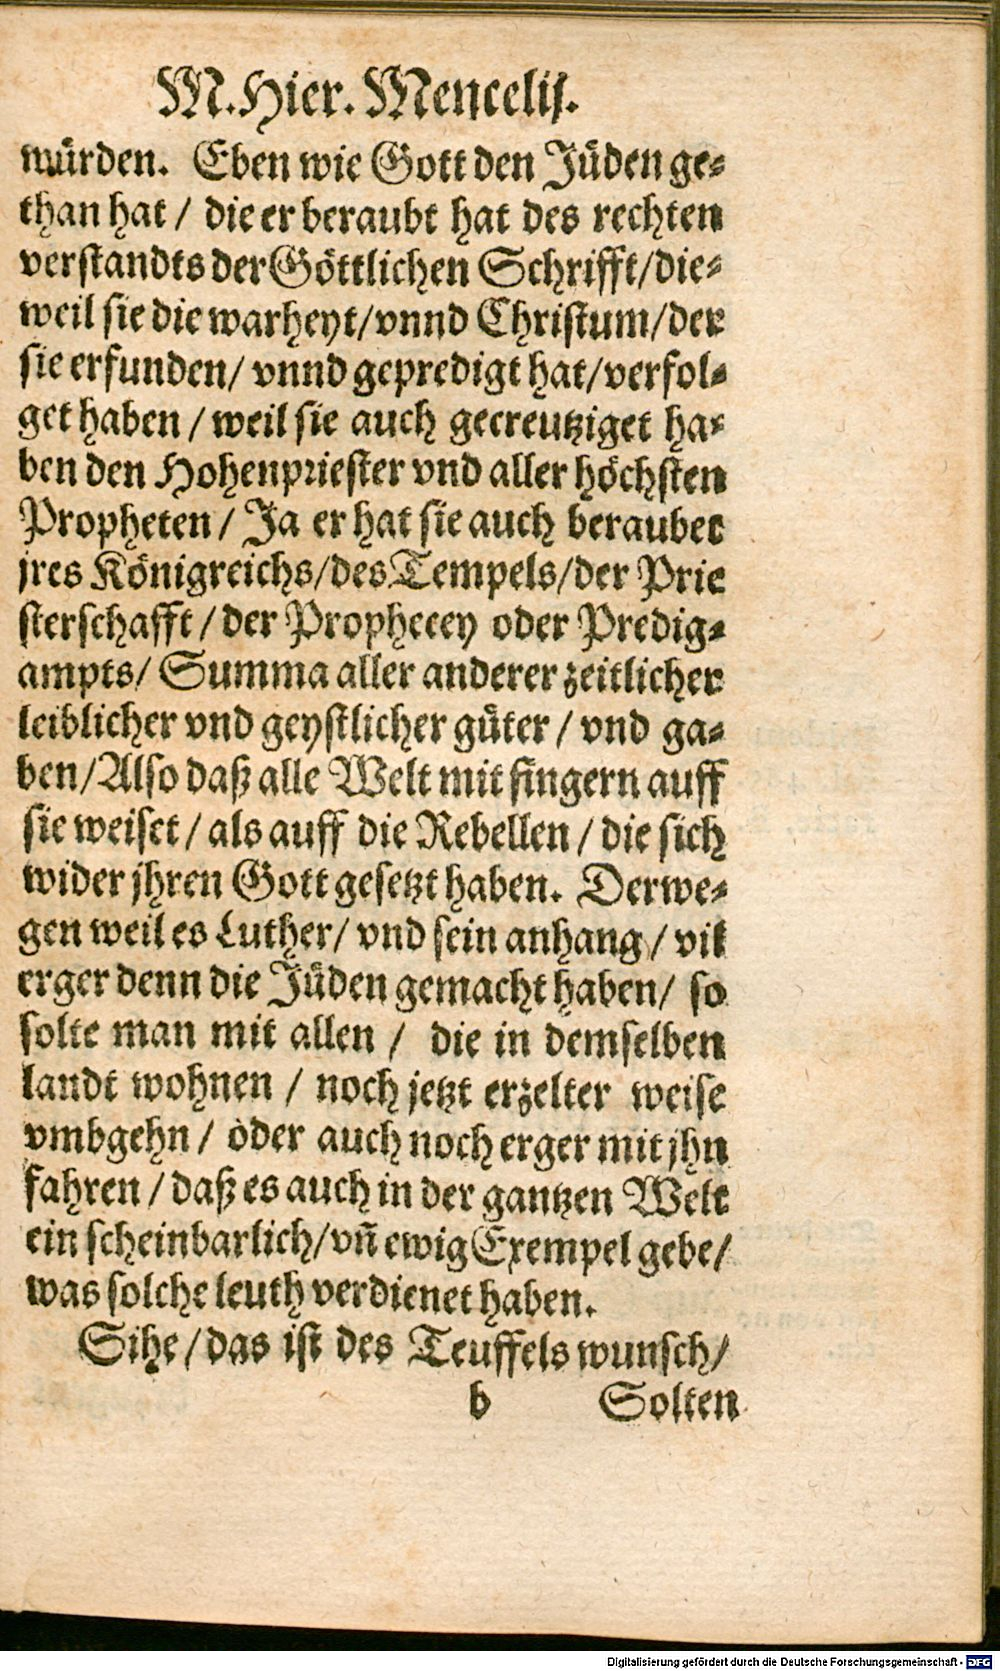 M. Hier. Mencelij.
würden. Eben wie Gott den Jüden ge-
than hat / die er beraubt hat des rechten
verstandts der Göttlichen Schrifft/die-
weil sie die warheyt/vnnd Christum/der
sie erfunden/ vnnd gepredigt hat/verfol-
get haben / weil sie auch gecreutziget ha-
ben den Hohenpriester vnd aller höchsten
Propheten / Ja er hat sie auch beraubet
jres Königreichs/des Tempels/der Prie
sterschafft / der Prophecey oder Predig-
ampts/ Summa aller anderer zeitlicher
leiblicher vnd geystlicher güter / vnd ga-
ben/Also daß alle Welt mit fingern auff
sie weiset / als auff die Rebellen / die sich
wider jhren Gott gesetzt haben. Derwe-
gen weil es Luther/ vnd sein anhang / vil
erger denn die Jüden gemacht haben/ so
solte man mit allen / die in demselben
landt wohnen / noch jetzt erzelter weise
vmbgehn / oder auch noch erger mit jhn
fahren / daß es auch in der gantzen Welt
ein scheinbarlich/vn̄ ewig Exempel gebe/
was solche leuth verdienet haben.
Sihe / das ist des Teuffels wunsch/
b Solten
Digitalisierung gefördert durch die Deutsche Forschungsgemeinschaft - DFG